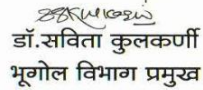 डॉ.सविता कुलकर्णी
भूगोल विभाग प्रमुख